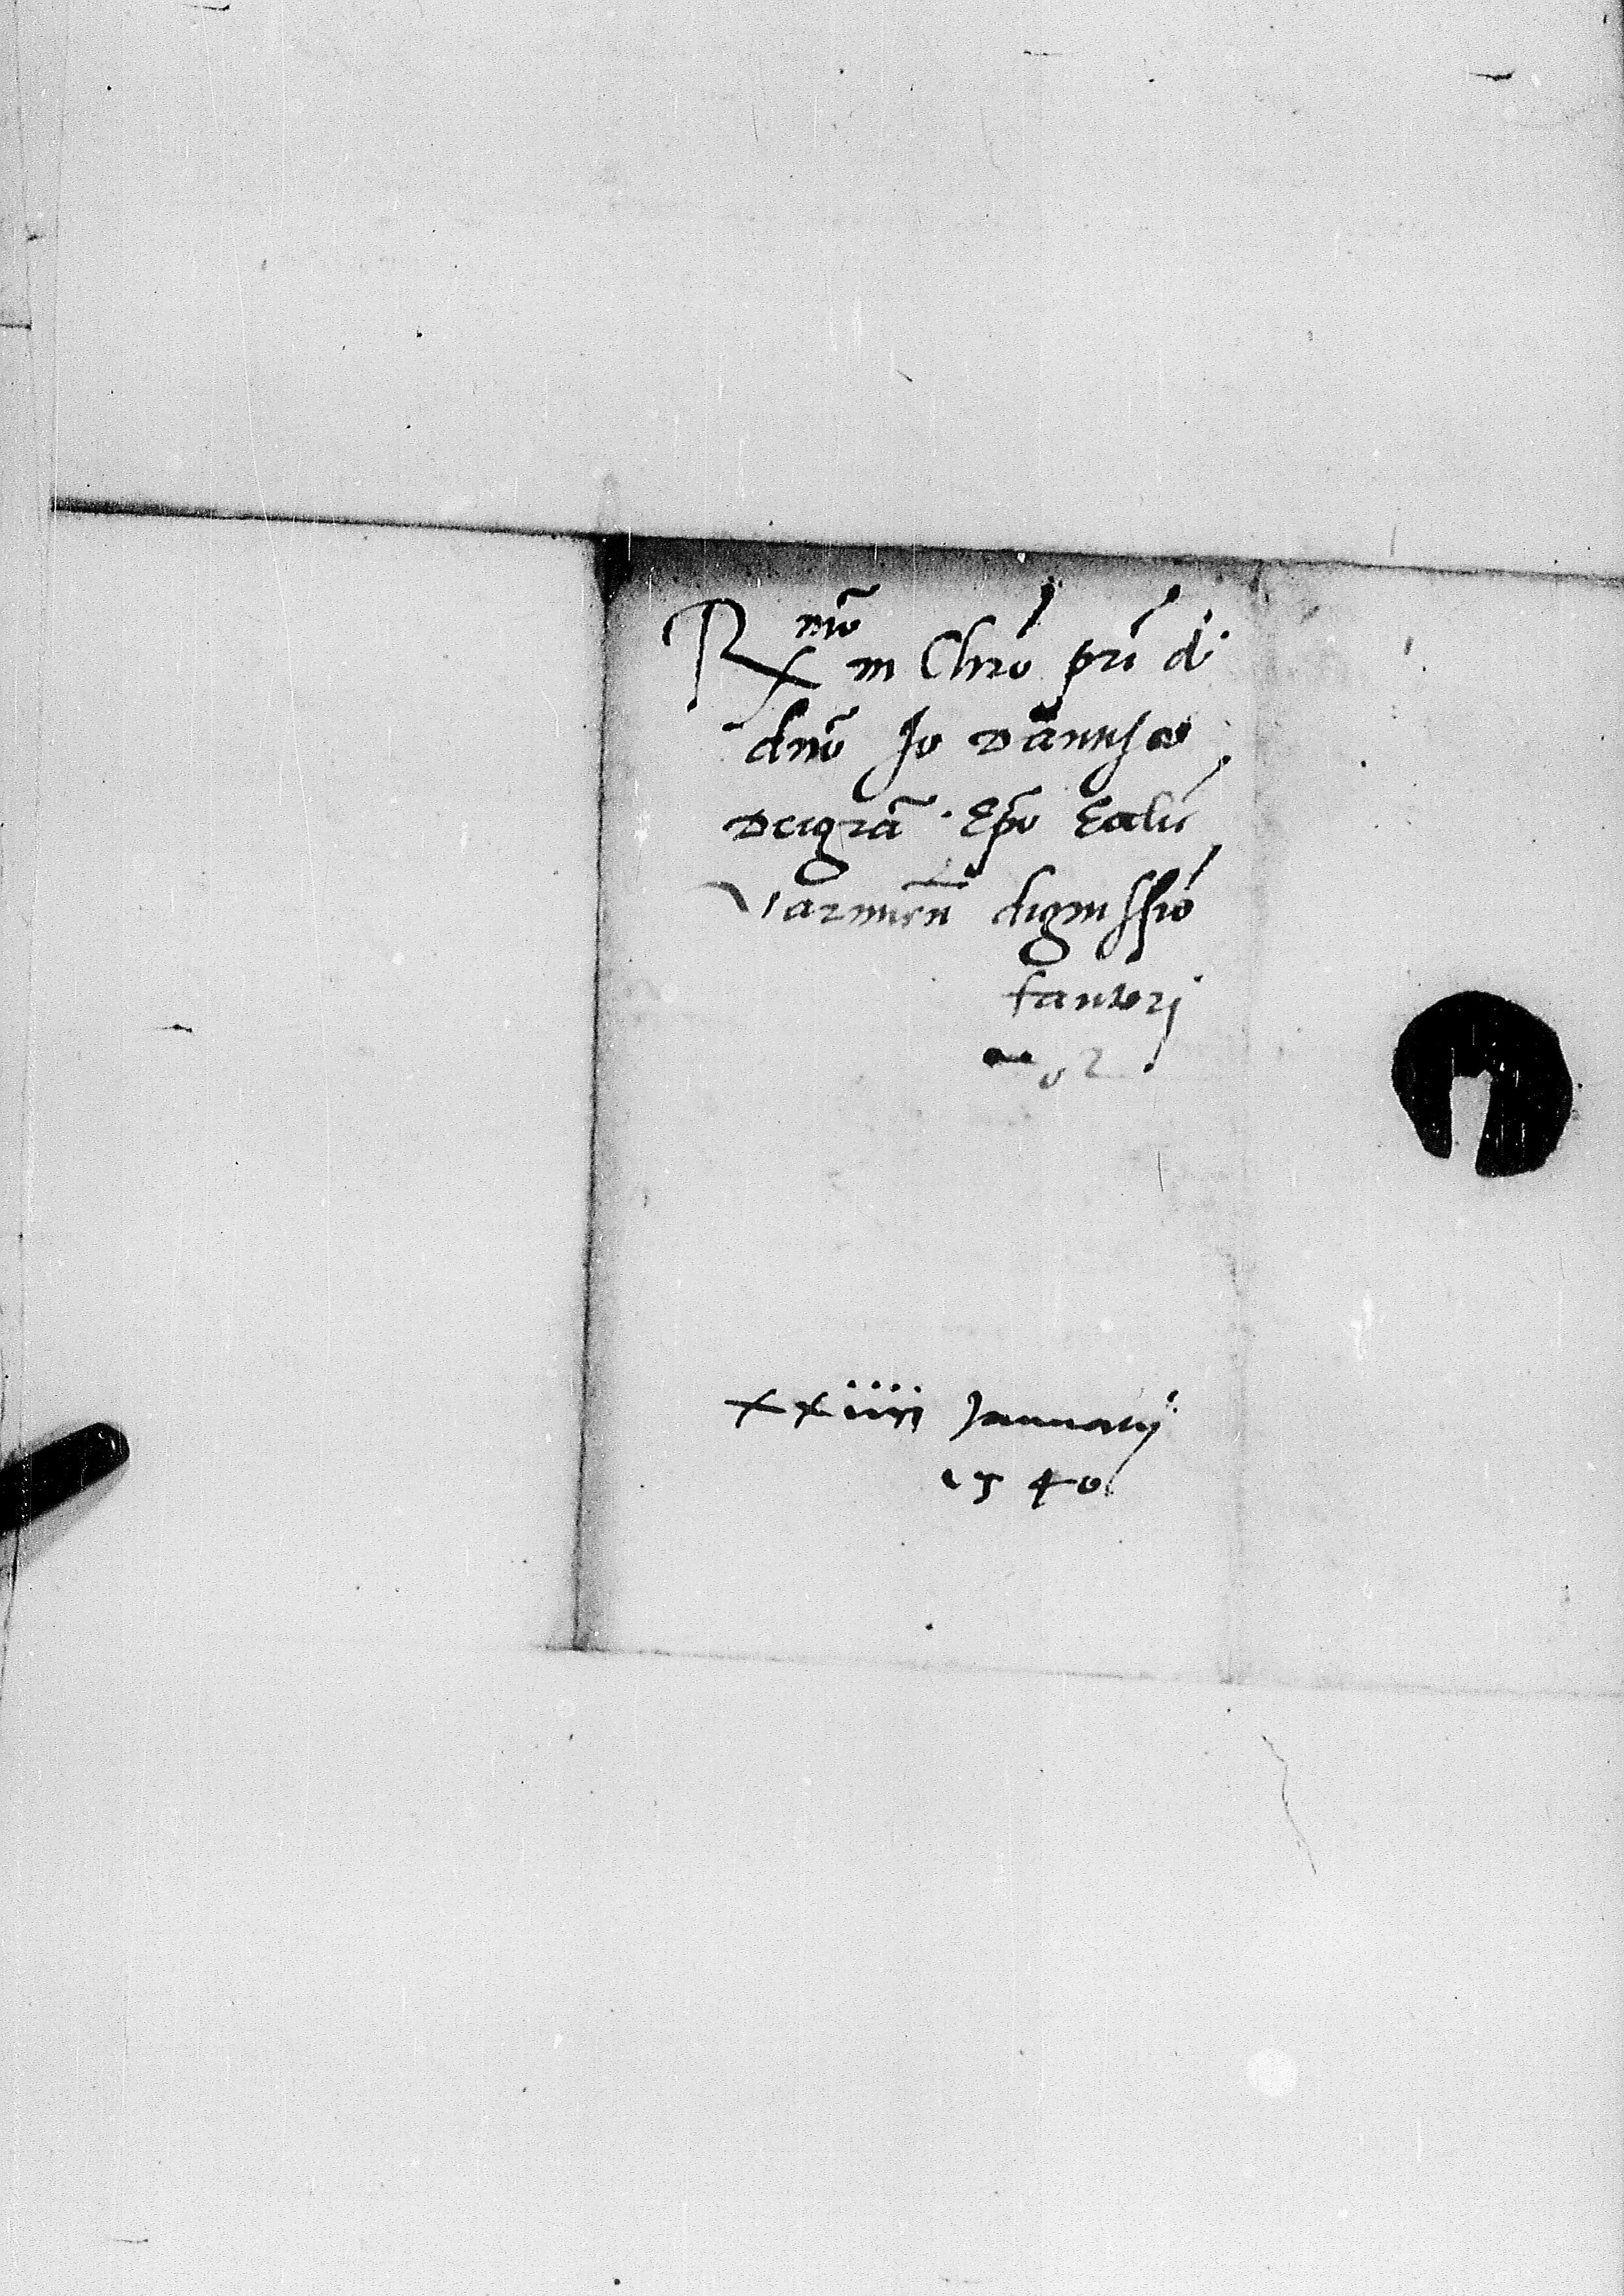 R mo in Chro pri d.
dno Jo Dantisco
Dei gra Epo Eccliē
Varmien̄ dignissio
fautori
xxiiii Januarij
1540